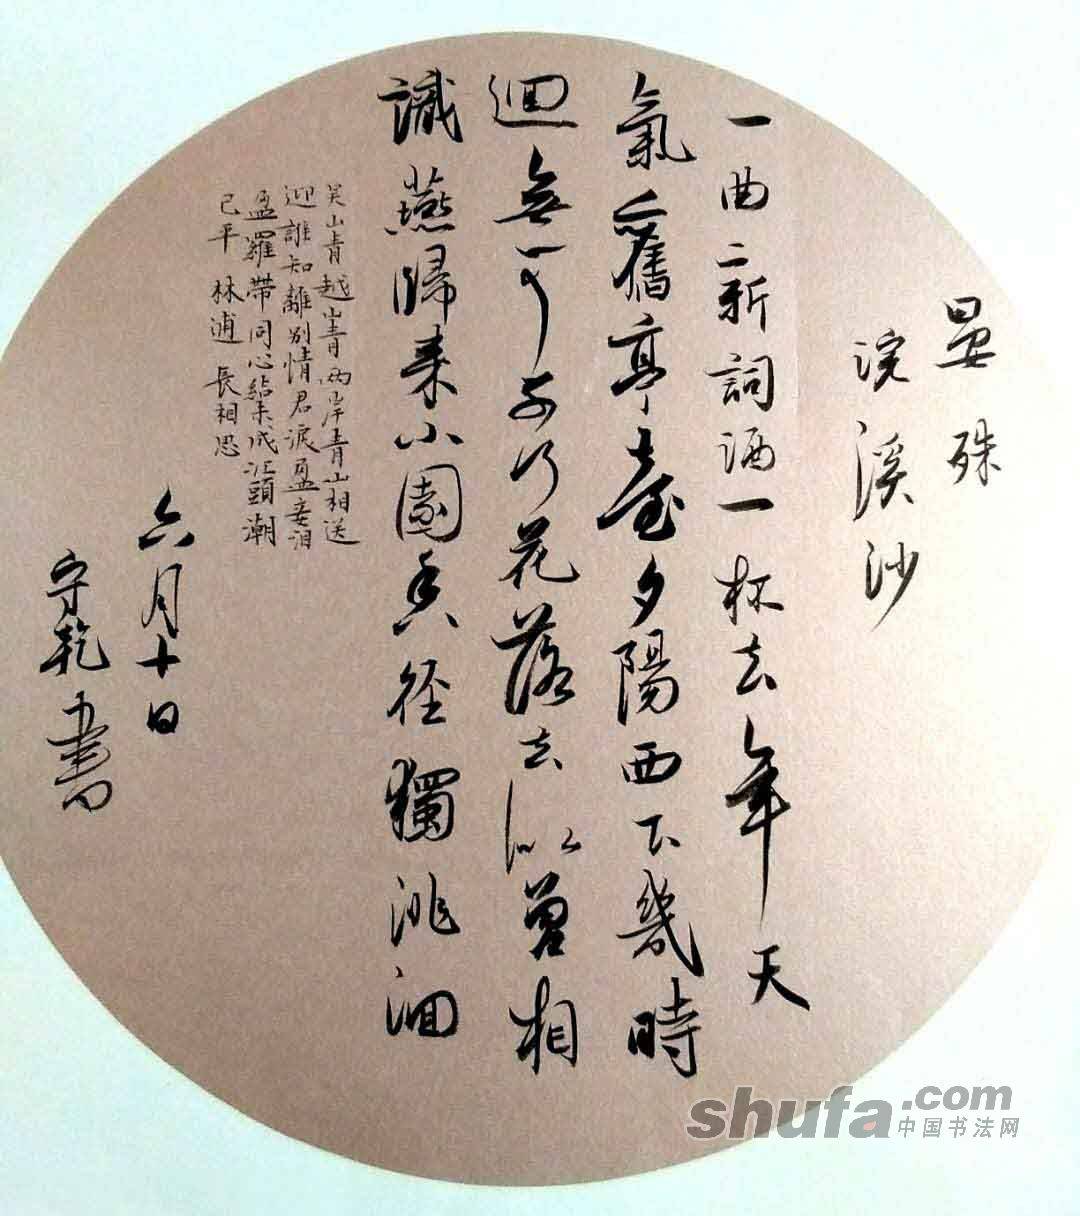 晏殊
浣溪沙
一曲新詞酒一杯去年天
氣舊亭臺夕陽西下幾時
迴無可奈何花落去似曾相
識燕歸來小園香徑獨徘徊
吳山青越山青兩岸青山相送
迎誰知離別情君淚盈妾泪
盈羅帶同心結未成江頭潮
已平 林逋 長相思
六月十日
守乾書
shufa.com
中国书法网